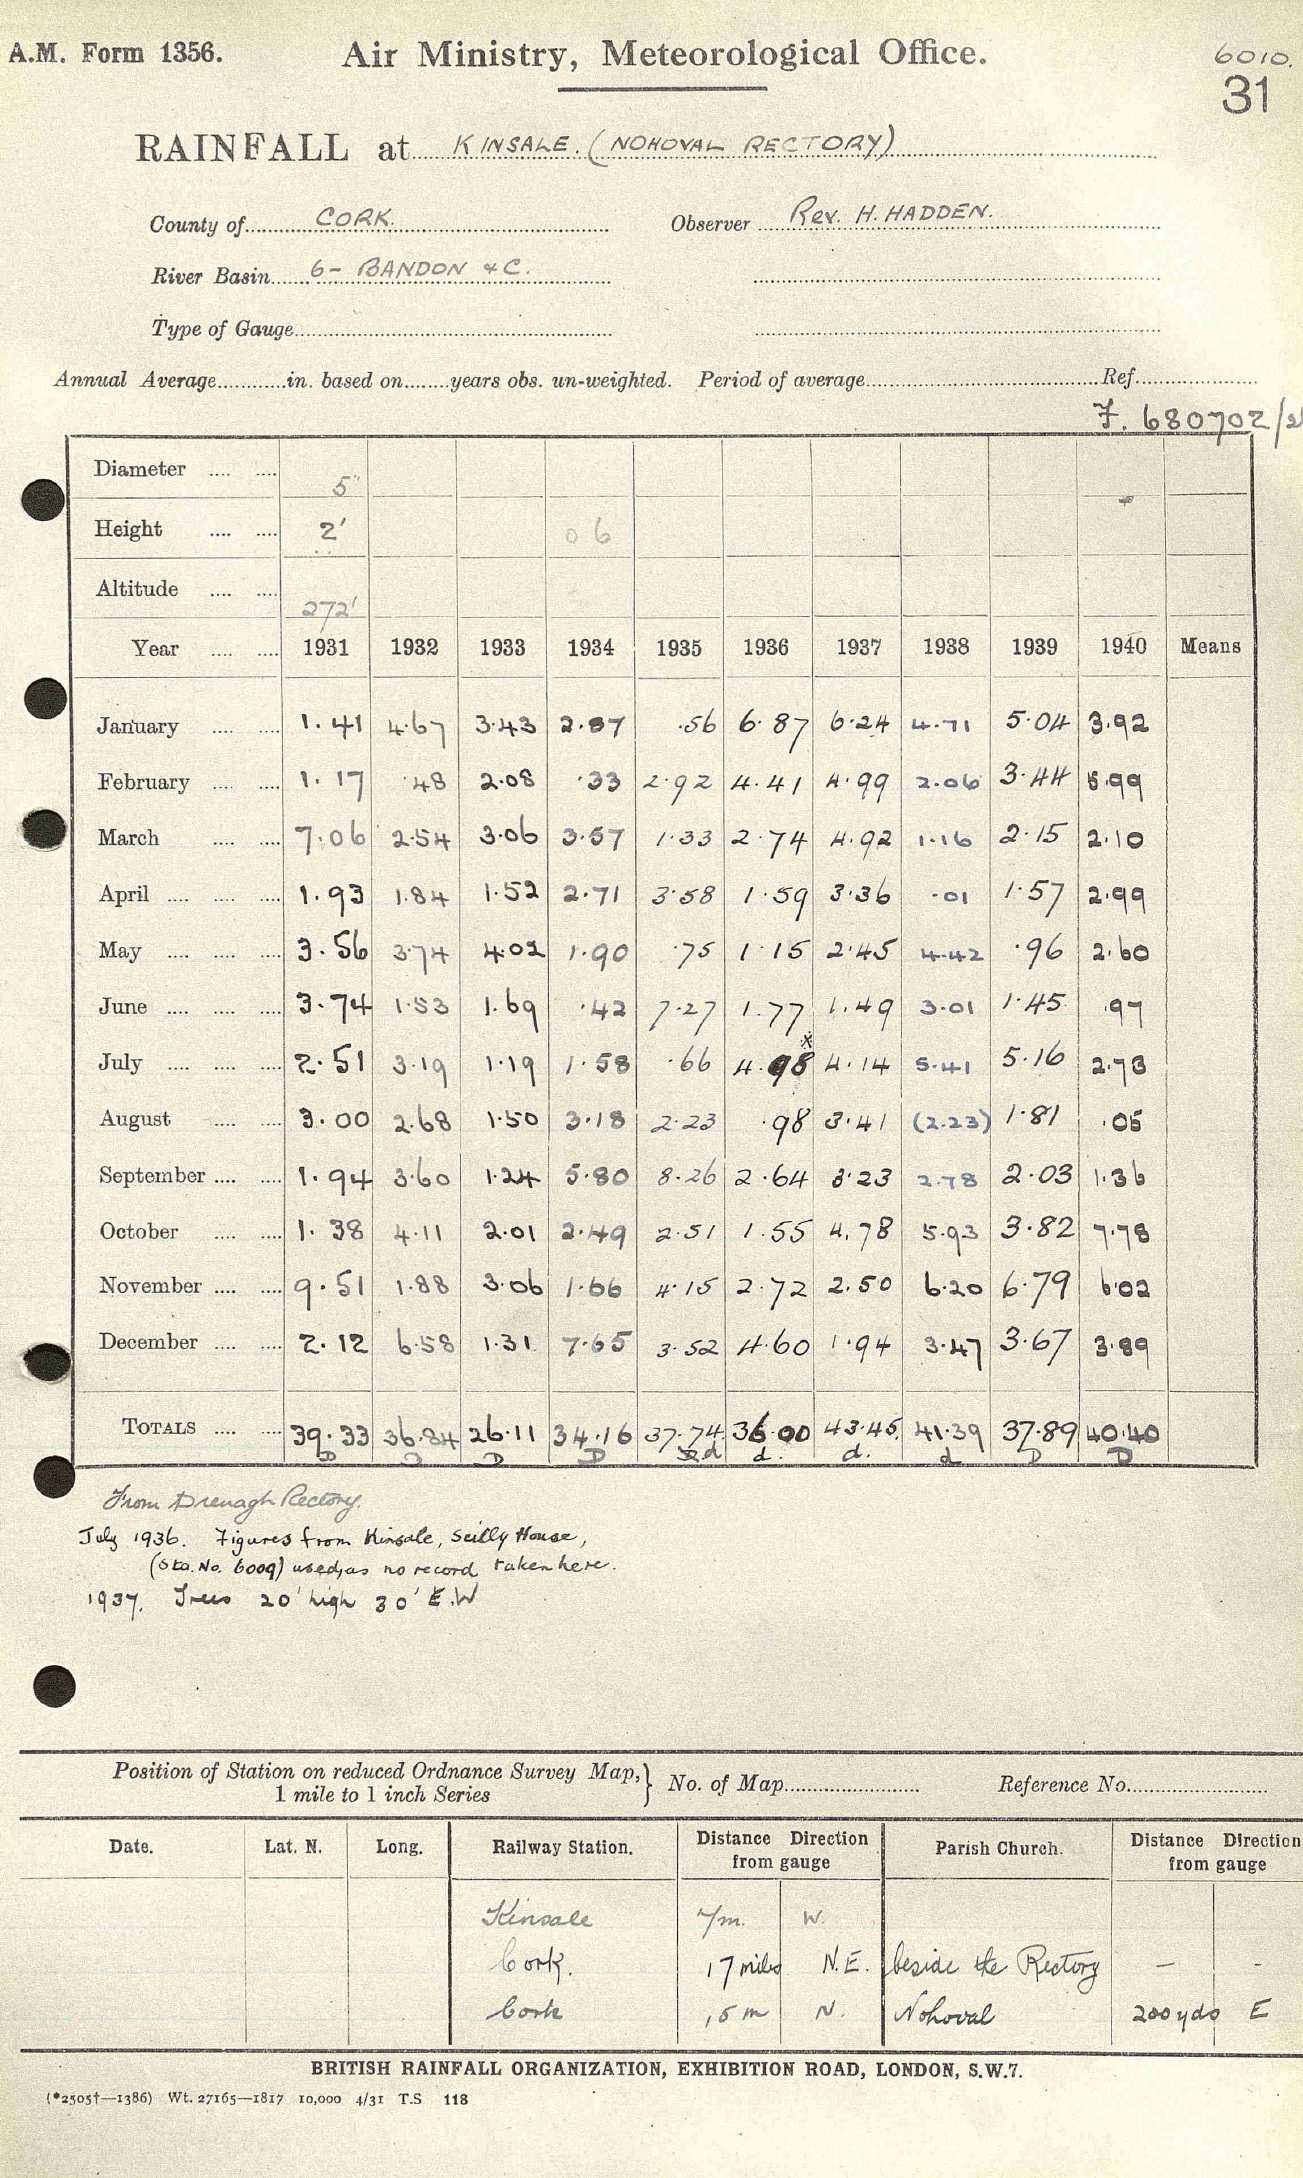 A.M. Form 1356. Air Ministry, Meteorological Office. 6010.
31
RAINFALL at KINSALE. (NOHOVAL RECTORY)
County of CORK. Observer Rev. H. HADDEN.
River Basin 6- BANDON &C.
Type of Gauge
Annual Average in. based on years obs. un-weighted. Period of average Ref.
F. 680702/2
Diameter 5"
Height 2' 06
Altitude 272'
Year 1931 1932 1933 1934 1935 1936 1937 1938 1939 1940 Means
January 1.41 4.67 3.43 2.87 .56 6.87 6.24 4.71 5.04 3.92
February 1.17 .48 2.08 .33 2.92 4.41 4.99 2.06 3.44 5.99
March 7.06 2.54 3.06 3.57 1.33 2.74 4.92 1.16 2.15 2.10
April 1.93 1.84 1.52 2.71 3.58 1.59 3.36 .01 1.57 2.99
May 3.56 3.74 4.02 1.90 .75 1.15 2.45 4.42 .96 2.60
June 3.74 1.53 1.69 .42 7.27 1.77 1.49 3.01 1.45 .97
July 2.51 3.19 1.19 1.58 .66 4.98x 4.14 5.41 5.16 2.73
August 3.00 2.68 1.50 3.18 2.23 .98 3.41 (2.23) 1.81 .05
September 1.94 3.60 1.24 5.80 8.26 2.64 3.23 2.78 2.03 1.36
October 1.38 4.11 2.01 2.49 2.51 1.55 4.78 5.93 3.82 7.78
November 9.51 1.88 3.06 1.66 4.15 2.72 2.50 6.20 6.79 6.02
December 2.12 6.58 1.31 7.65 3.52 4.60 1.94 3.47 3.67 3.89
TOTALS 39.33 36.84 26.11 34.16 37.74 36.00 43.45 41.39 37.89 40.40
D D D D d d. d. d D D
From Drenagh Rectory.
July 1936. Figures from Kinsale, Scilly House,
(Sta. No. 6009) used, as no record taken here.
1937. Trees 20' high 30' E.W
Position of Station on reduced Ordnance Survey Map, 1 mile to 1 inch Series } No. of Map Reference No.
Date. Lat. N. Long. Railway Station. Distance Direction from gauge Parish Church. Distance Direction from gauge
Kinsale 7m. W.
Cork. 17 miles N.E. beside the Rectory - -
Cork 15 m N. Nohoval 200 yds E
BRITISH RAINFALL ORGANIZATION, EXHIBITION ROAD, LONDON, S.W.7.
(*2505†—1386) Wt. 27165—1817 10,000 4/31 T.S 118